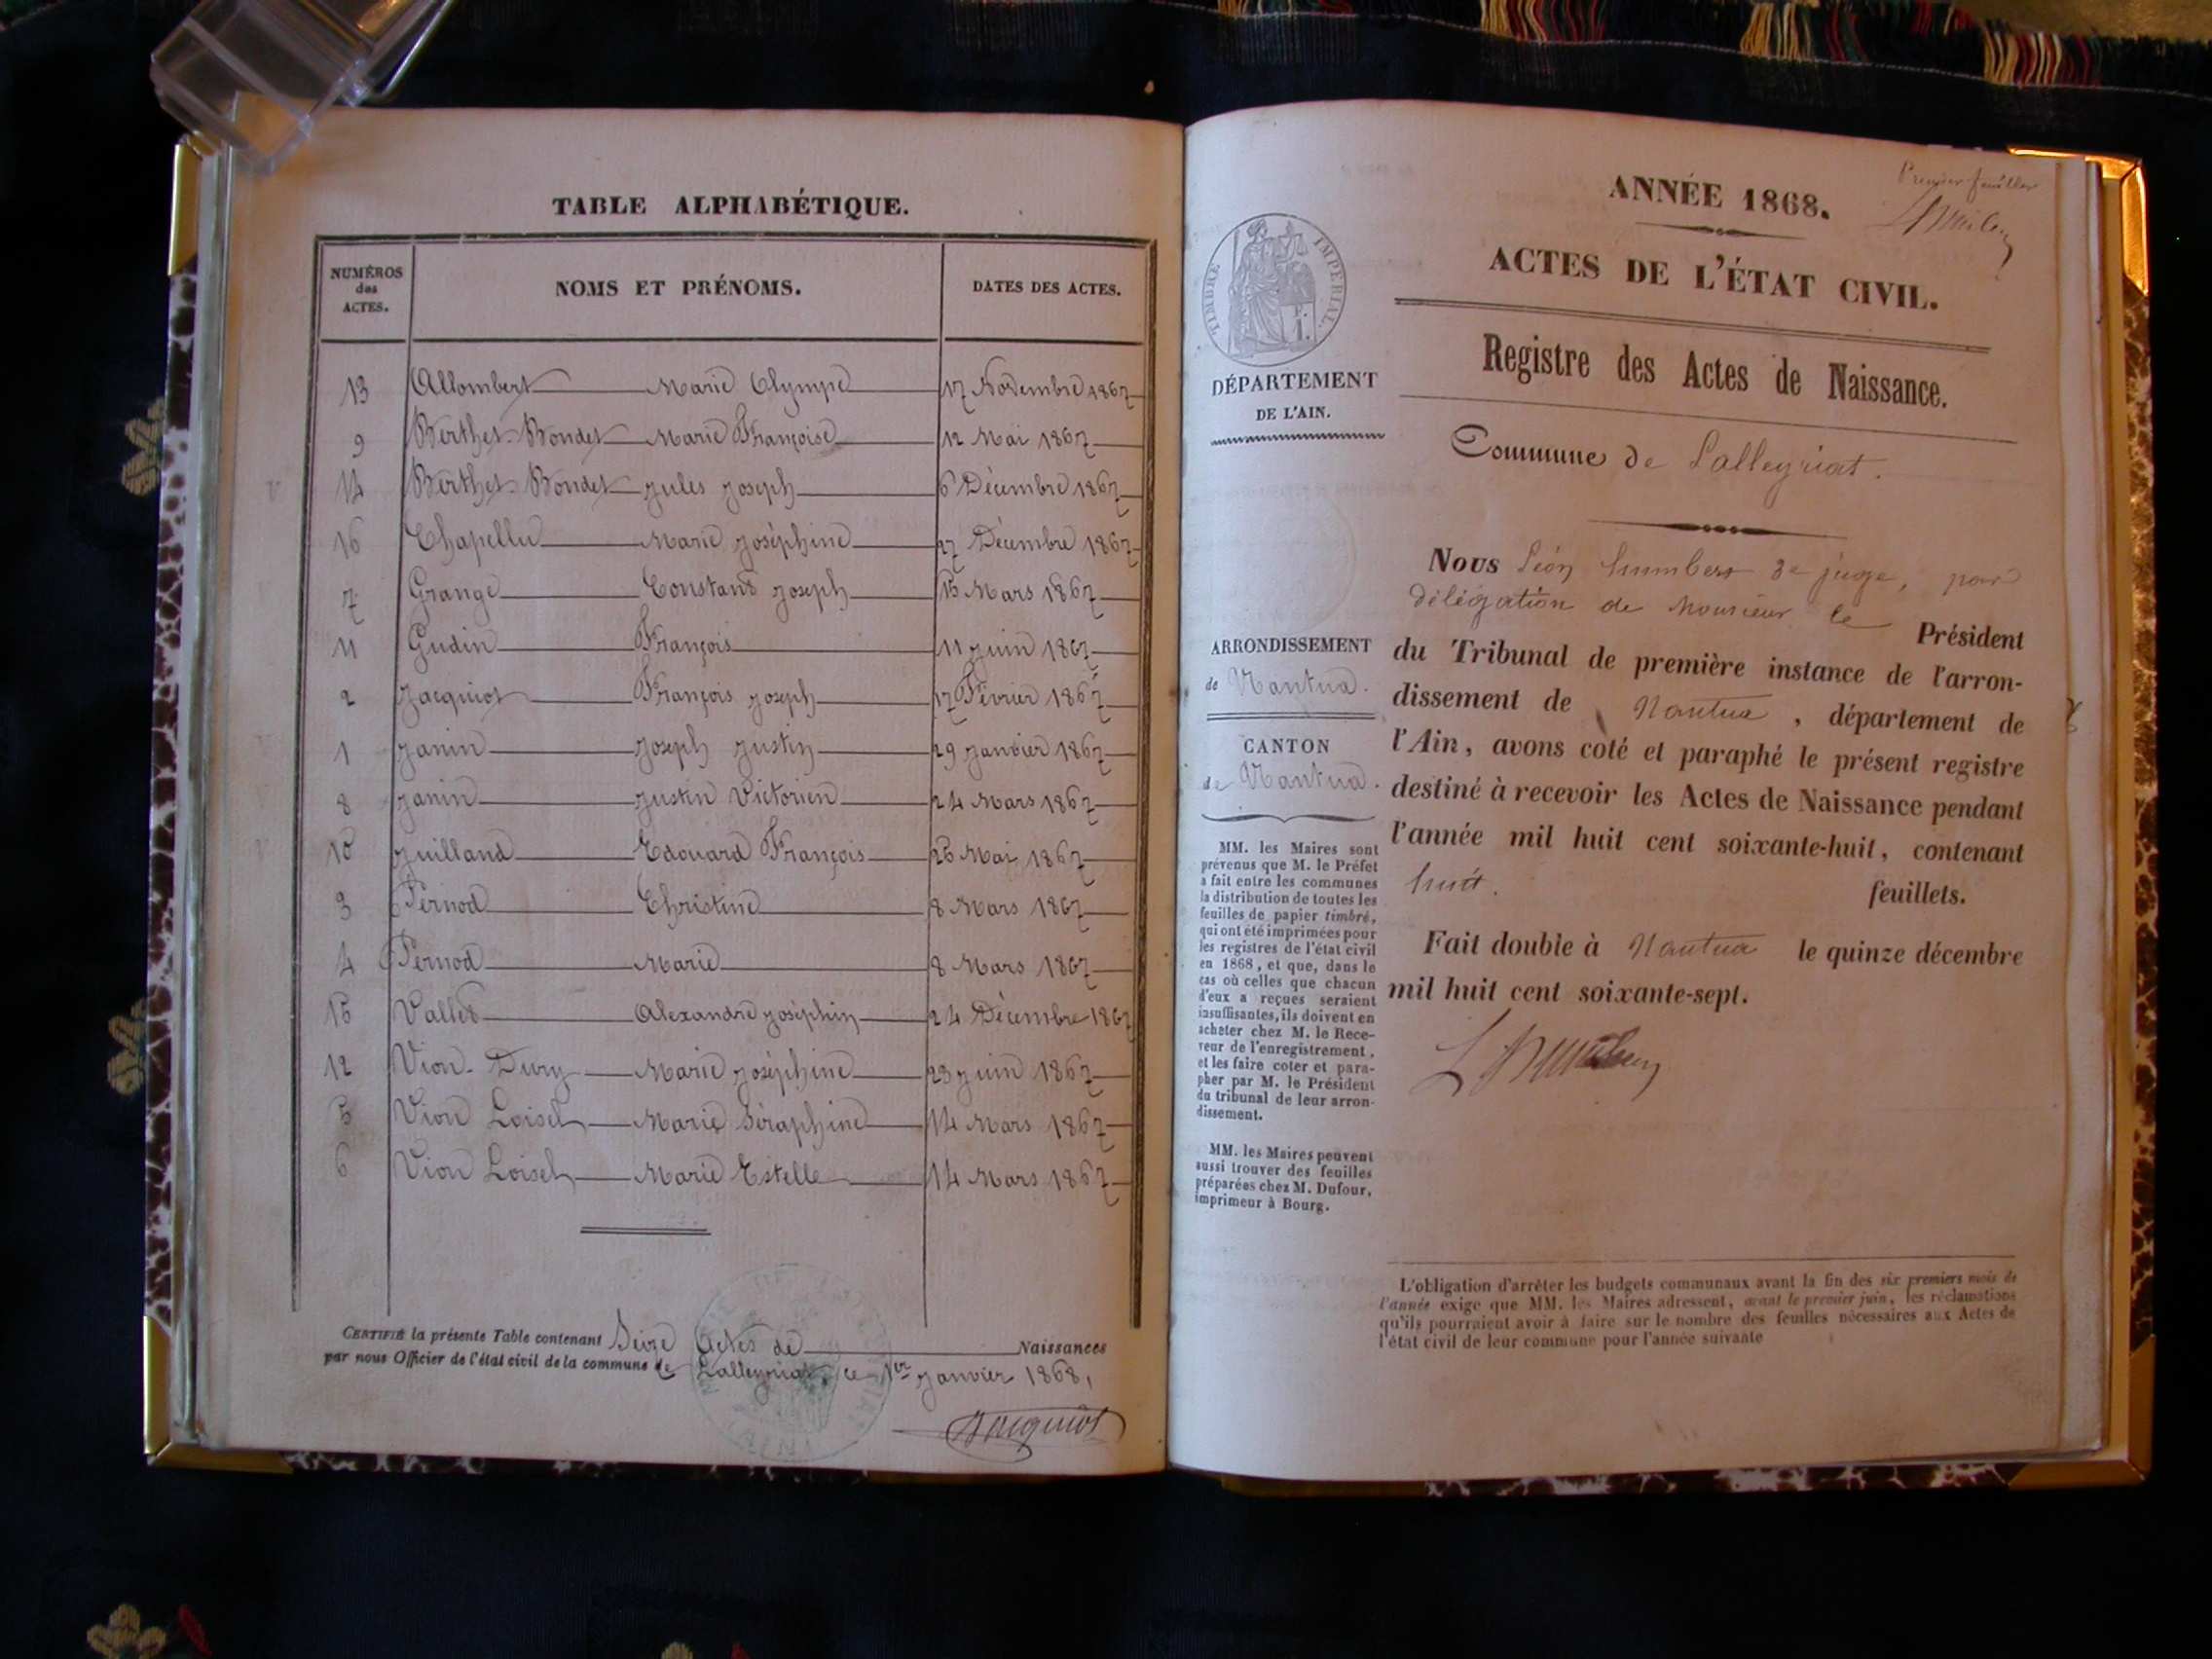 TABLE ALPHABÉTIQUE.
NUMÉROS des ACTES.
NOMS ET PRÉNOMS.
DATES DES ACTES.
13 Allombert Marie Olympe 17 Novembre 1867
9 Berthet-Bondet Marie Françoise 12 Mai 1867
14 Berthet-Bondet Jules Joseph 6 Décembre 1867
16 Chapellu Marie Joséphine 27 Décembre 1867
7 Grange Constant Joseph 15 Mars 1867
11 Gudin François 11 Juin 1867
2 Jacquiot François Joseph 17 Février 1867
1 Janin Joseph Justin 29 Janvier 1867
8 Janin Justin Victorien 24 Mars 1867
10 Juilland Edouard François 25 Mai 1867
3 Pernod Christine 8 Mars 1867
4 Pernod Marie 8 Mars 1867
15 Vallet Alexandre Joséphin 24 Décembre 1867
12 Vion-Dury Marie Joséphine 23 Juin 1867
5 Vion Loisel Marie Séraphine 14 Mars 1867
6 Vion Loisel Marie Estelle 14 Mars 1867
CERTIFIÉ la présente Table contenant Seize Actes de Naissances
par nous Officier de l'état civil de la commune de Lalleyriat, ce 1er Janvier 1868,
Jacquiot
Premier feuillet
ANNÉE 1868.
ACTES DE L'ÉTAT CIVIL.
TIMBRE IMPÉRIAL.
Registre des Actes de Naissance.
DÉPARTEMENT
DE L'AIN.
Commune de Lalleyriat.
Nous Léon Humbert 3e juge, par
délégation de Monsieur le Président
du Tribunal de première instance de l'arron-
dissement de Nantua, département de
l'Ain, avons coté et paraphé le présent registre
destiné à recevoir les Actes de Naissance pendant
l'année mil huit cent soixante-huit, contenant
huit. feuillets.
Fait double à Nantua le quinze décembre
mil huit cent soixante-sept.
ARRONDISSEMENT
de Nantua.
CANTON
de Nantua.
MM. les Maires sont
prévenus que M. le Préfet
a fait entre les communes
la distribution de toutes les
feuilles de papier timbré,
qui ont été imprimées pour
les registres de l'état civil
en 1868, et que, dans le
cas où celles que chacun
d'eux a reçues seraient
insuffisantes, ils doivent en
acheter chez M. le Rece-
veur de l'enregistrement,
et les faire coter et para-
pher par M. le Président
du tribunal de leur arron-
dissement.
MM. les Maires peuvent
aussi trouver des feuilles
préparées chez M. Dufour,
imprimeur à Bourg.
L'obligation d'arrêter les budgets communaux avant la fin des six premiers mois de
l'année exige que MM. les Maires adressent, avant le premier juin, les réclamations
qu'ils pourraient avoir à faire sur le nombre des feuilles nécessaires aux Actes de
l'état civil de leur commune pour l'année suivante